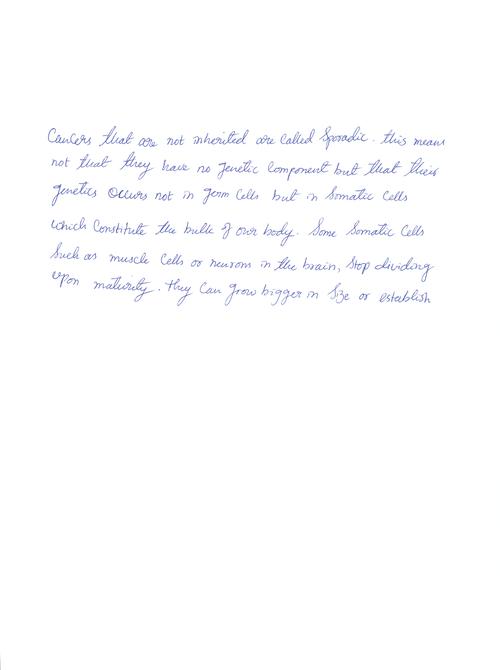 Cancers that are not inherited are called Sporadic. this means
not that they have no genetic component but that their
genetics Occurs not in germ cells but in Somatic Cells
which Constitute the bulk of our body. Some Somatic Cells
Such as muscle Cells or neurons in the brain, Stop dividing
upon maturity. they Can grow bigger in Size or establish